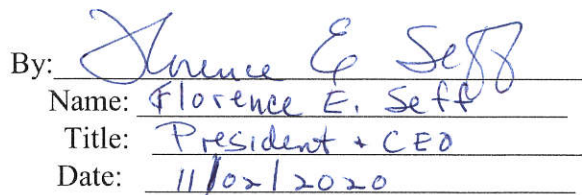 By: Florence E Seff
Name: Florence E. Seff
Title: President + CEO
Date: 11/02/2020